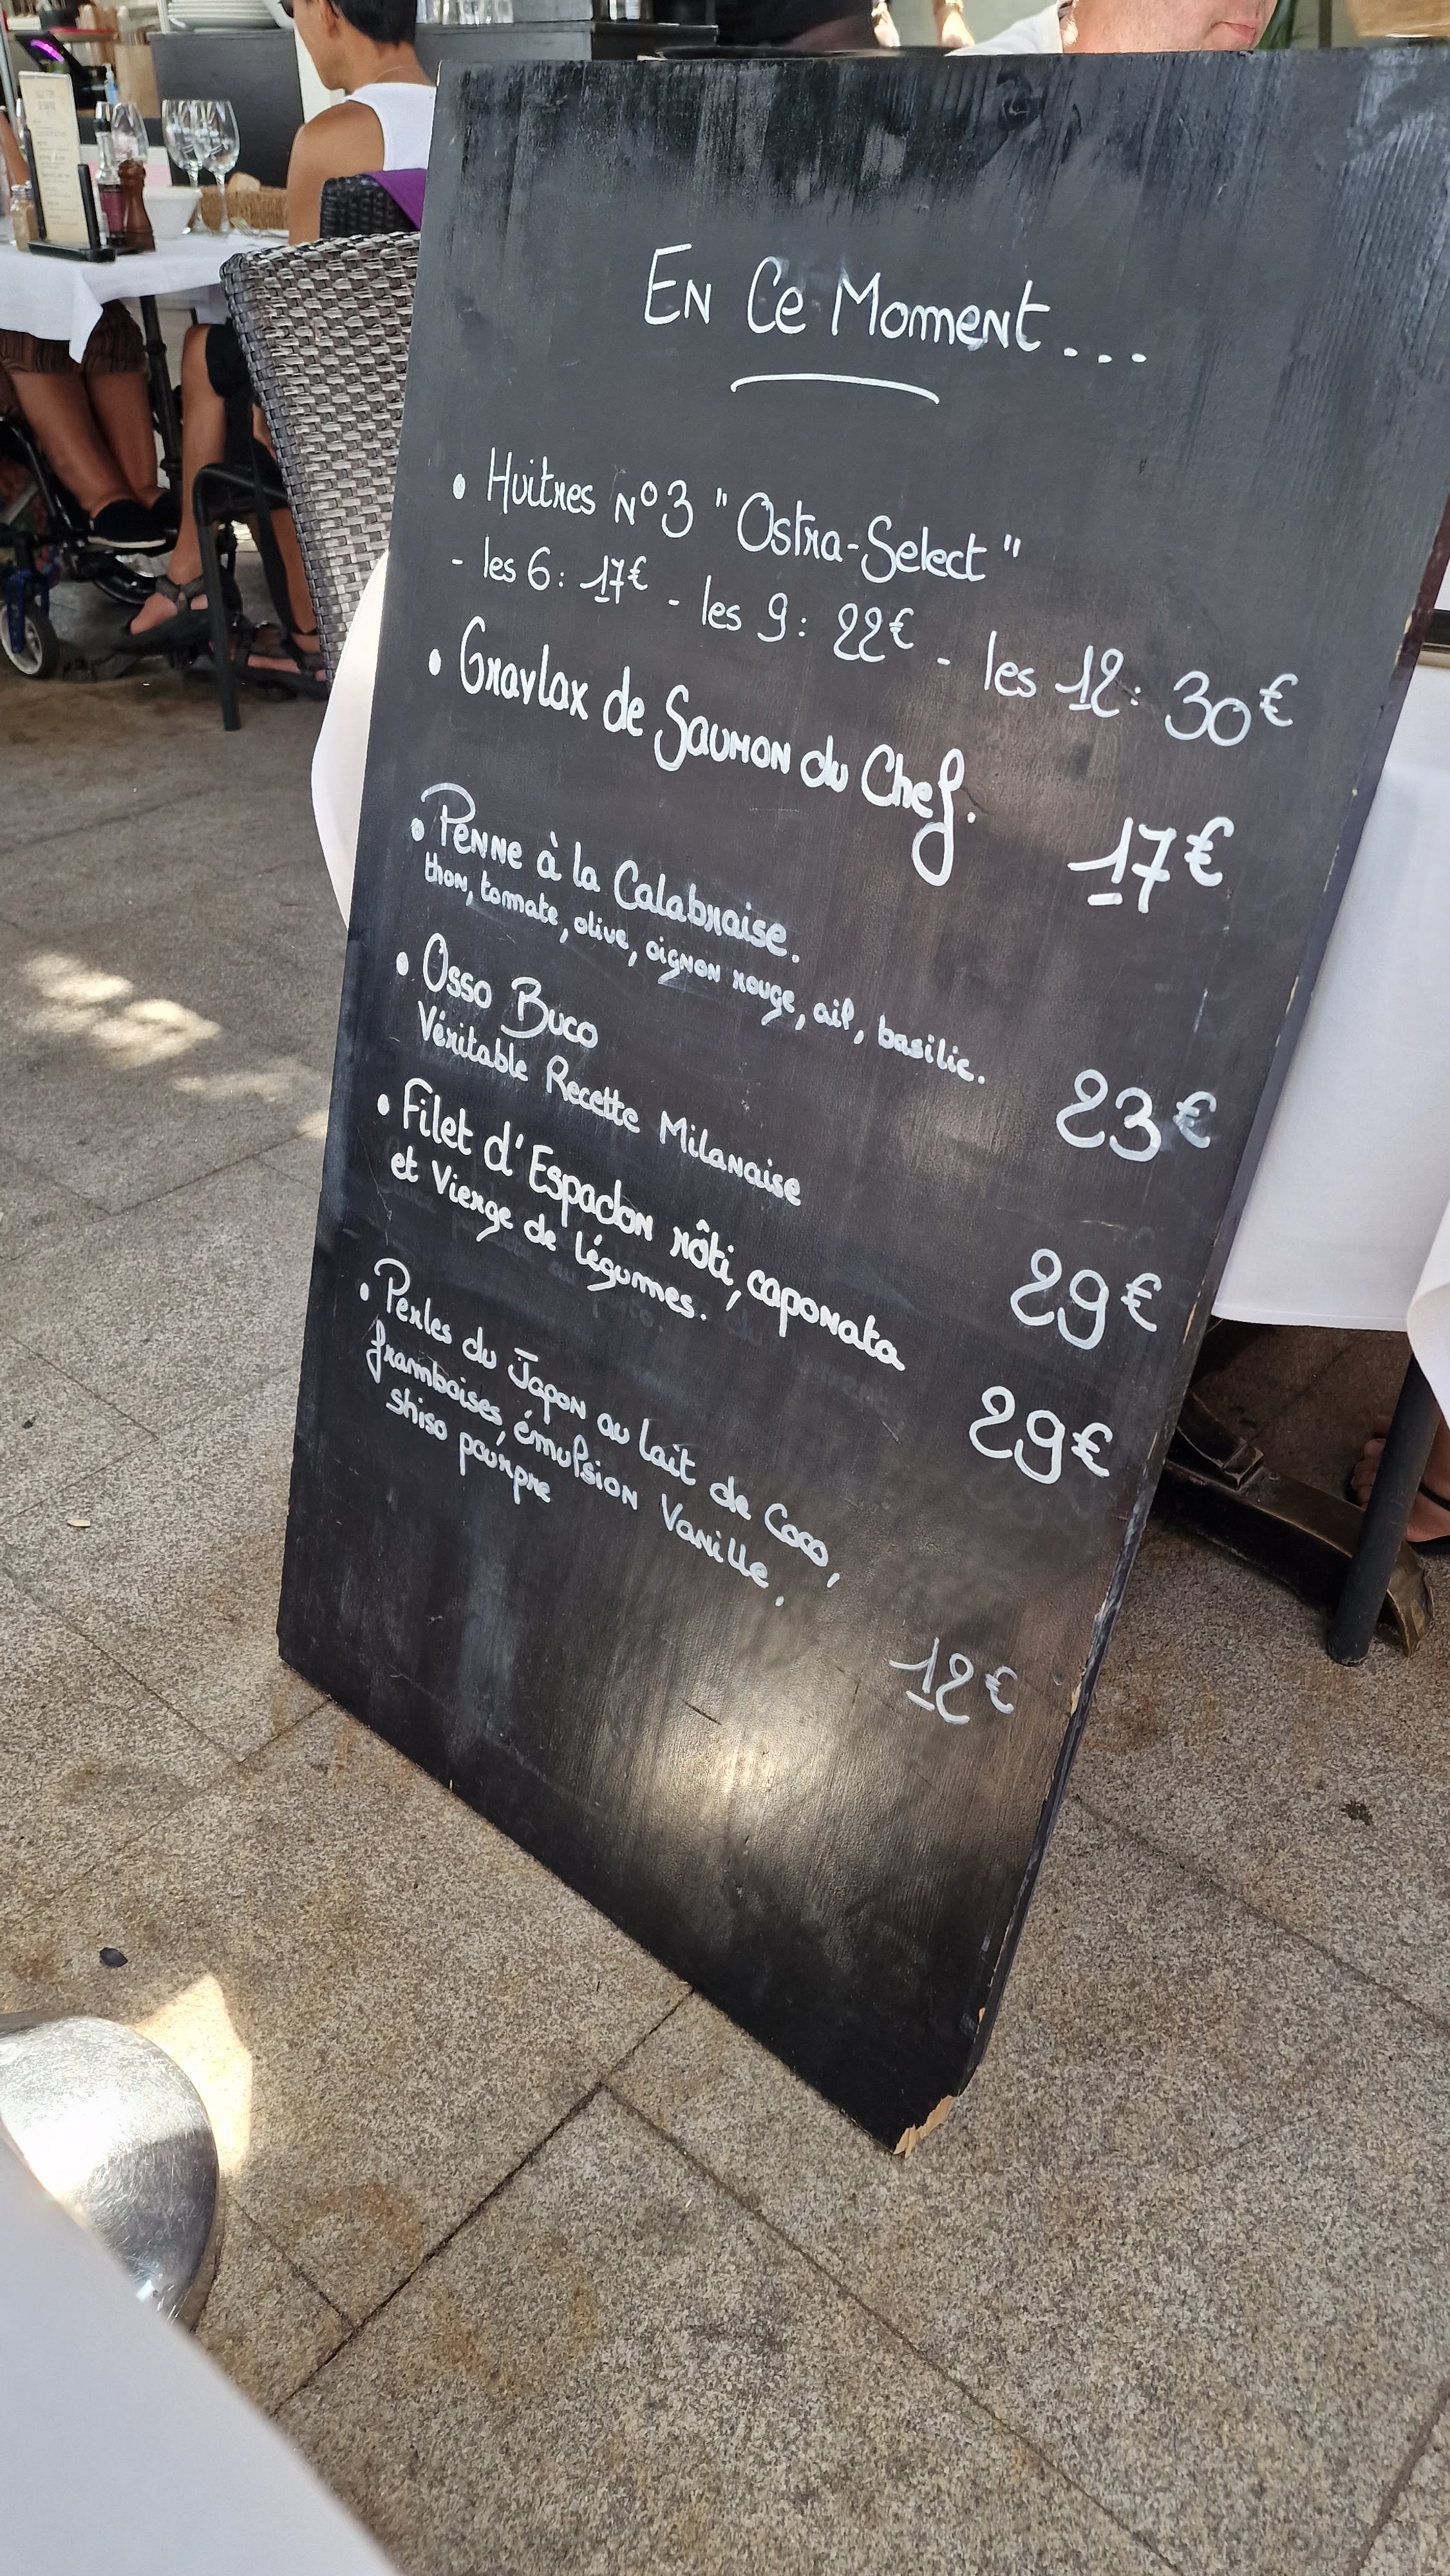 En Ce Moment...
• Huitres N°3 "Ostra-Select"
- les 6: 17€ - les 9: 22€ - les 12: 30€
• Gravlax de Saumon du Chef. 17€
• Penne à la Calabraise.
thon, tomate, olive, oignon rouge, ail, basilic. 23€
• Osso Buco
Véritable Recette Milanaise 29€
• Filet d'Espadon rôti, caponata
et Vierge de légumes. 29€
• Perles du Japon au lait de Coco,
framboises, émulsion Vanille,
shiso pourpre 12€